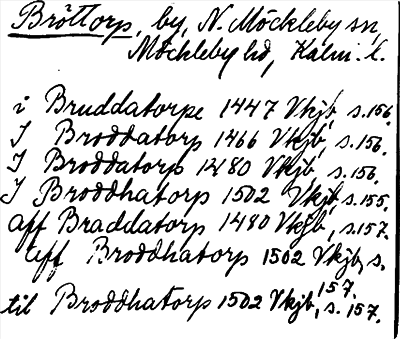 Bröttorp, by, N. Möckleby sn
Möckleby hd, Kalm. l.
i Bruddatorpe 1447 Vkjb, s. 156.
J Broddatorp 1466 Vkjb, s. 156.
J Broddatorp 1480 Vkjb, s. 156.
J Broddhatorp 1502 Vkjb, s. 155.
aff Braddatorp 1480 Vkjb, s. 157.
aff Broddhatorp 1502 Vkjb, s.
157.
til Broddhatorp 1502 Vkjb, s. 157.